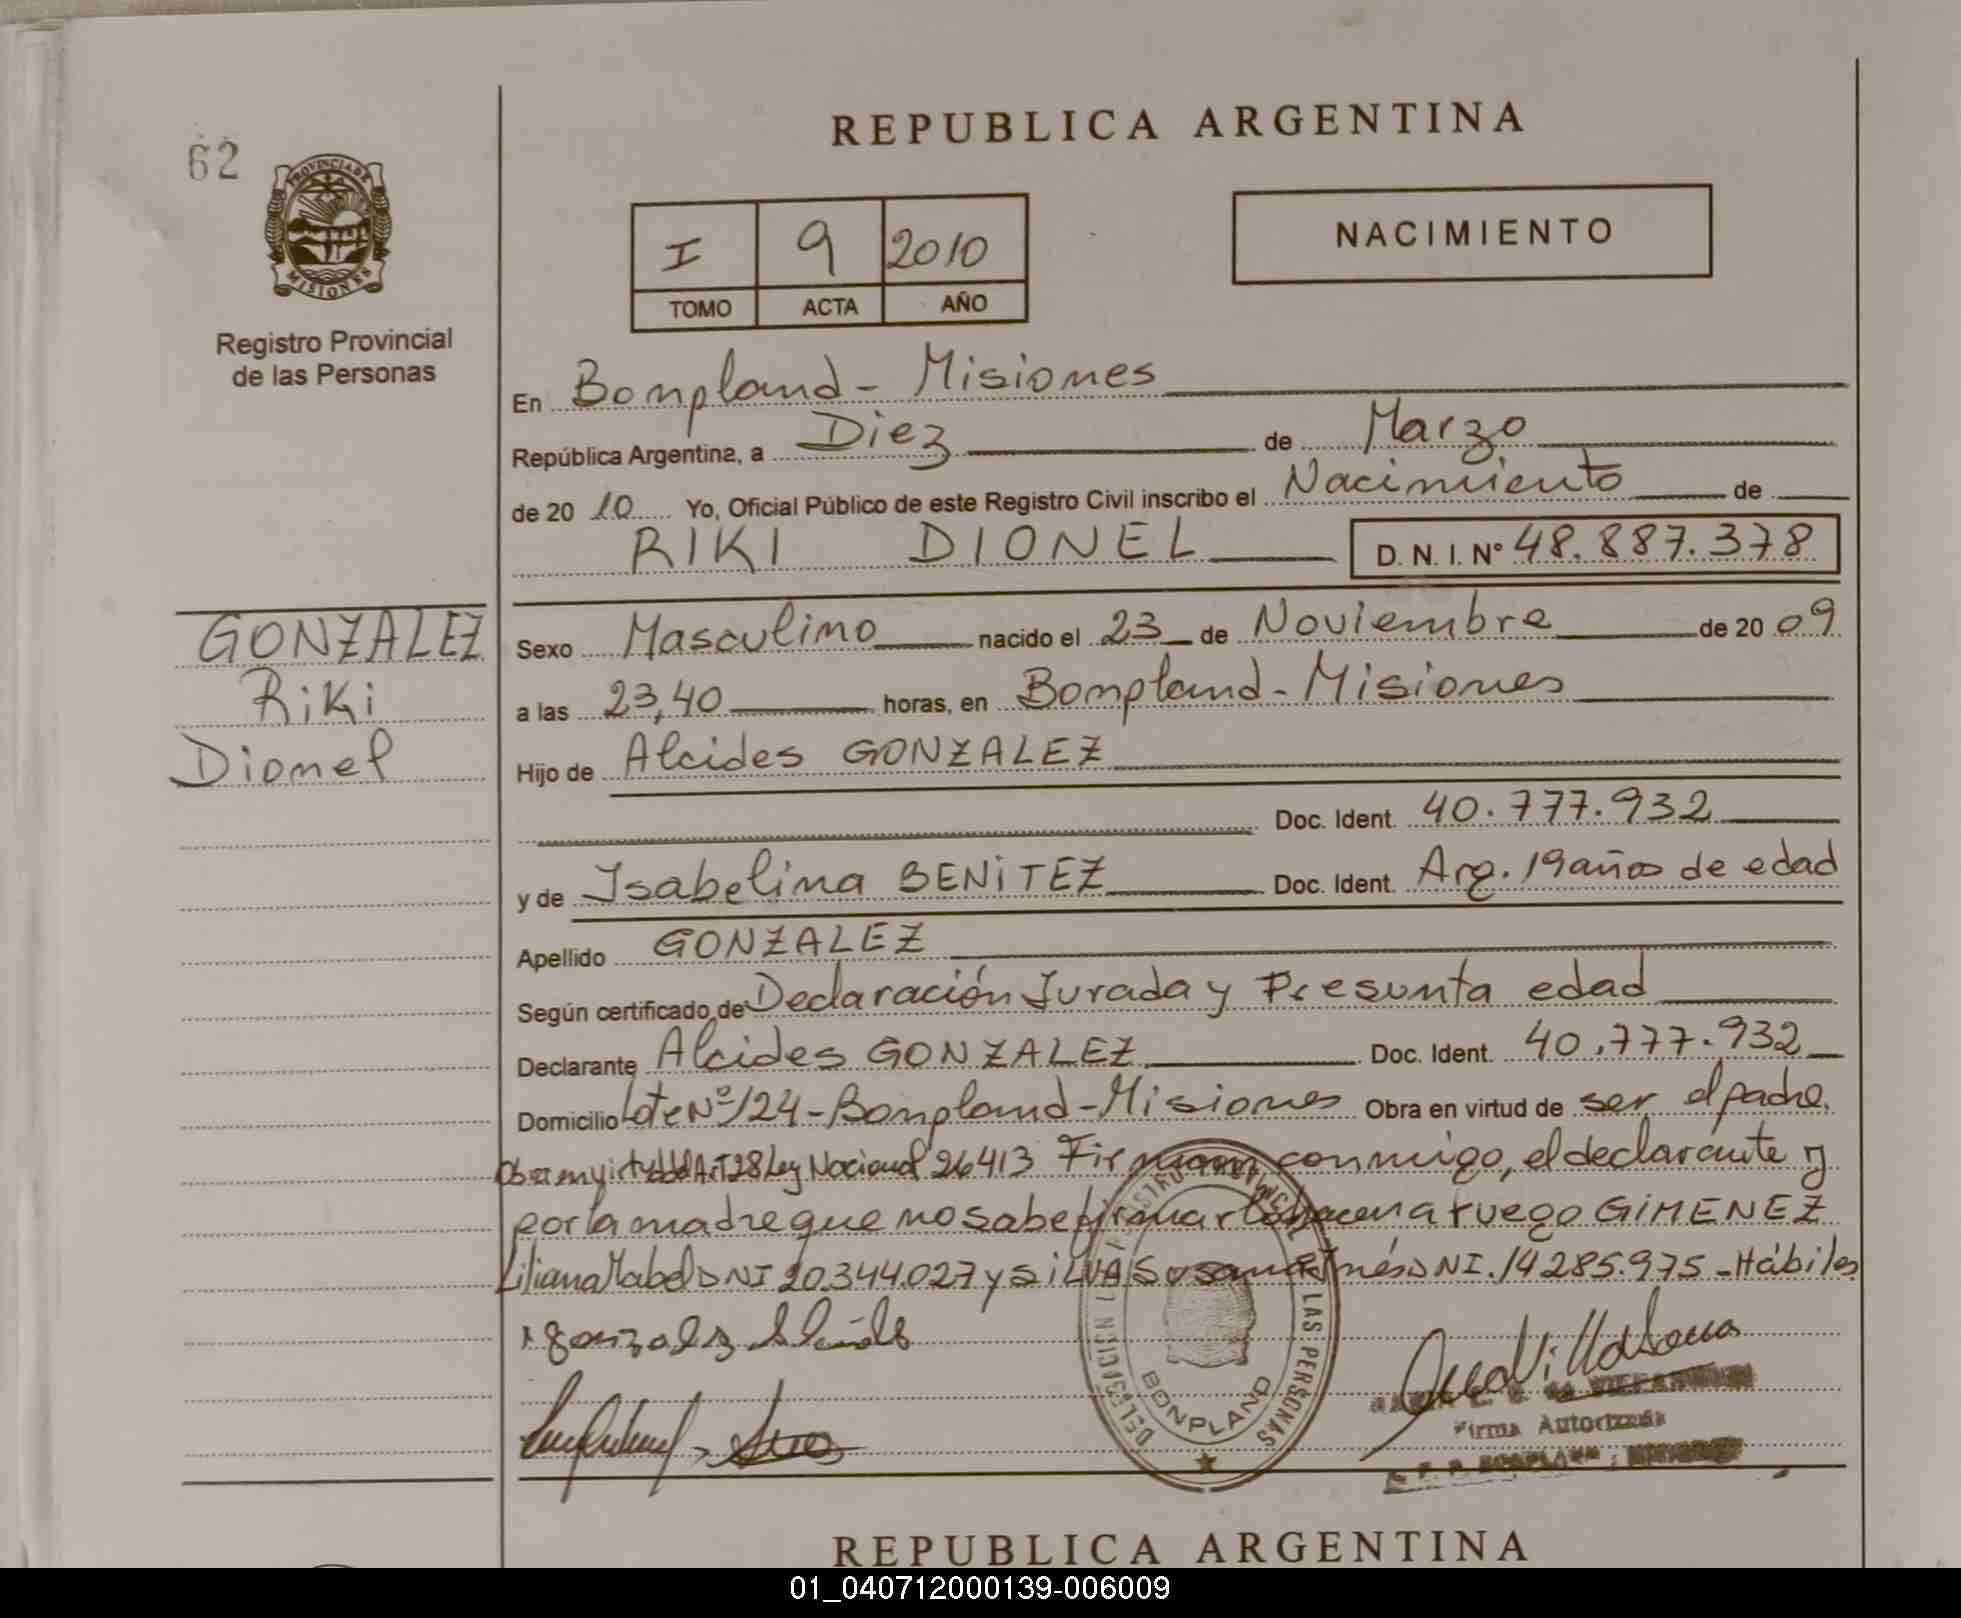 62
PROVINCIA DE
MISIONES
Registro Provincial
de las Personas
GONZALEZ
Riki
Dionel
REPUBLICA ARGENTINA
I 9 2010
TOMO ACTA AÑO
NACIMIENTO
En Bonpland - Misiones
República Argentina, a Diez de Marzo
de 20 10 Yo, Oficial Público de este Registro Civil inscribo el Nacimiento de
RIKI DIONEL D. N. I. Nº 48.887.378
Sexo Masculino nacido el 23 de Noviembre de 20 09
a las 23,40 horas, en Bonpland - Misiones
Hijo de Alcides GONZALEZ
Doc. Ident. 40.777.932
y de Isabelina BENITEZ Doc. Ident. Arg. 19 años de edad
Apellido GONZALEZ
Según certificado de Declaración Jurada y Presunta edad
Declarante Alcides GONZALEZ Doc. Ident. 40.777.932
Domicilio Lote Nº 124 - Bonpland - Misiones Obra en virtud de ser el padre.
Obra en virtud del Art 28 Ley Nacional 26413 Firman conmigo, el declarante y
por la madre que no sabe firmar lo hacen a ruego GIMENEZ
Liliana Mabel DNI 20.344.027 y SILVA Susana Inés DNI. 14285.975 - Hábiles
gonzalez Alcides
DELEGACION REGISTRO PROVINCIAL DE LAS PERSONAS
BONPLAND
Firma Autorizada
REPUBLICA ARGENTINA
01_040712000139-006009